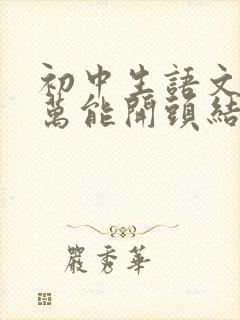 初中生語文
萬能開頭結
嚴秀華